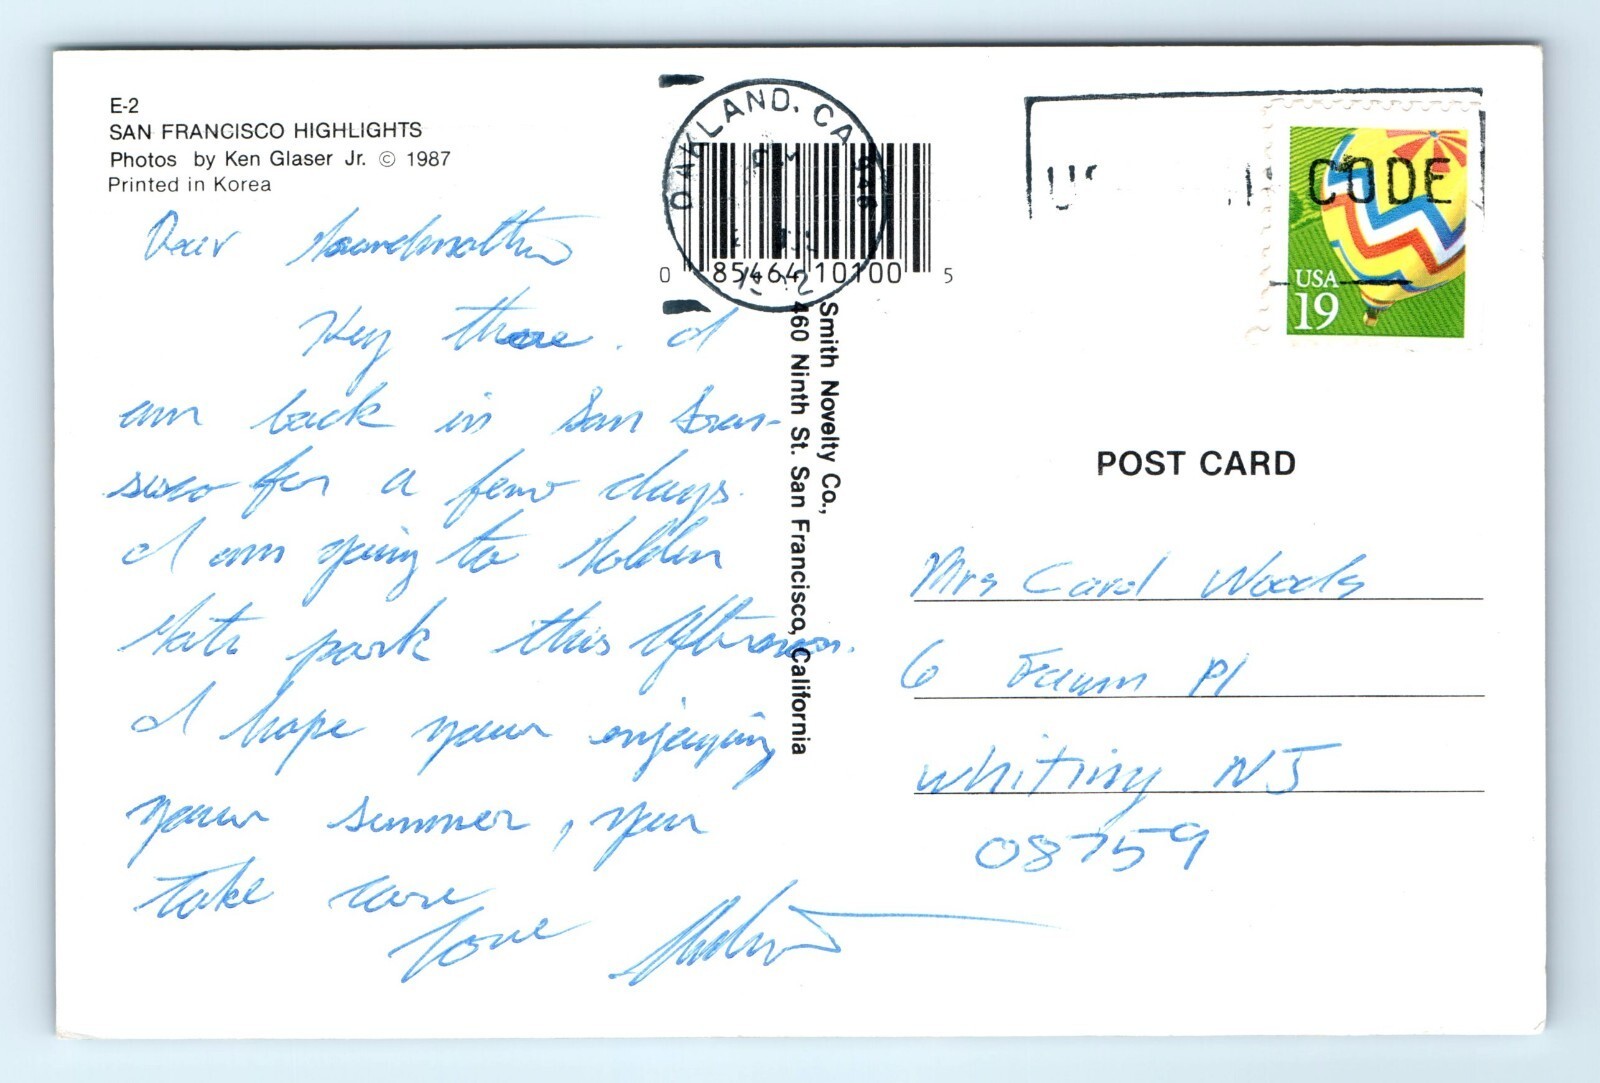 E-2
SAN FRANCISCO HIGHLIGHTS
Photos by Ken Glaser Jr. © 1987
Printed in Korea
Dear Grandmother
Hey there. I
am back in San Fran-
sisco for a few days.
I am going to Golden
Gate park this afternoon.
I hope your enjoying
your summer, you
take care
Love
OAKLAND, CA
PM
0 85464 10100 5
Smith Novelty Co.,
460 Ninth St. San Francisco, California
CODE
USA
19
POST CARD
Mrs Carol Woods
6 Pl
Whiting NJ
08759